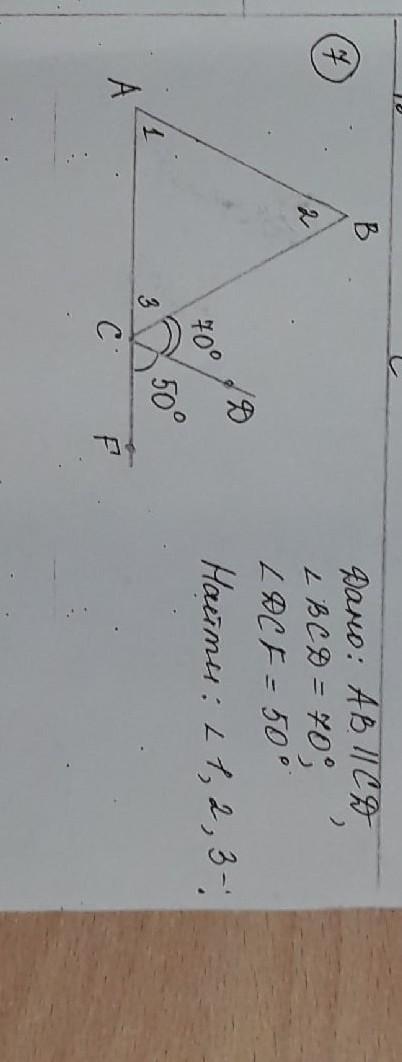 7
A
B
C
D
F
1
2
3
70°
50°
Дано: AB || CD,
∠ BCD = 70°,
∠ DCF = 50°.
Найти: ∠ 1, 2, 3-?